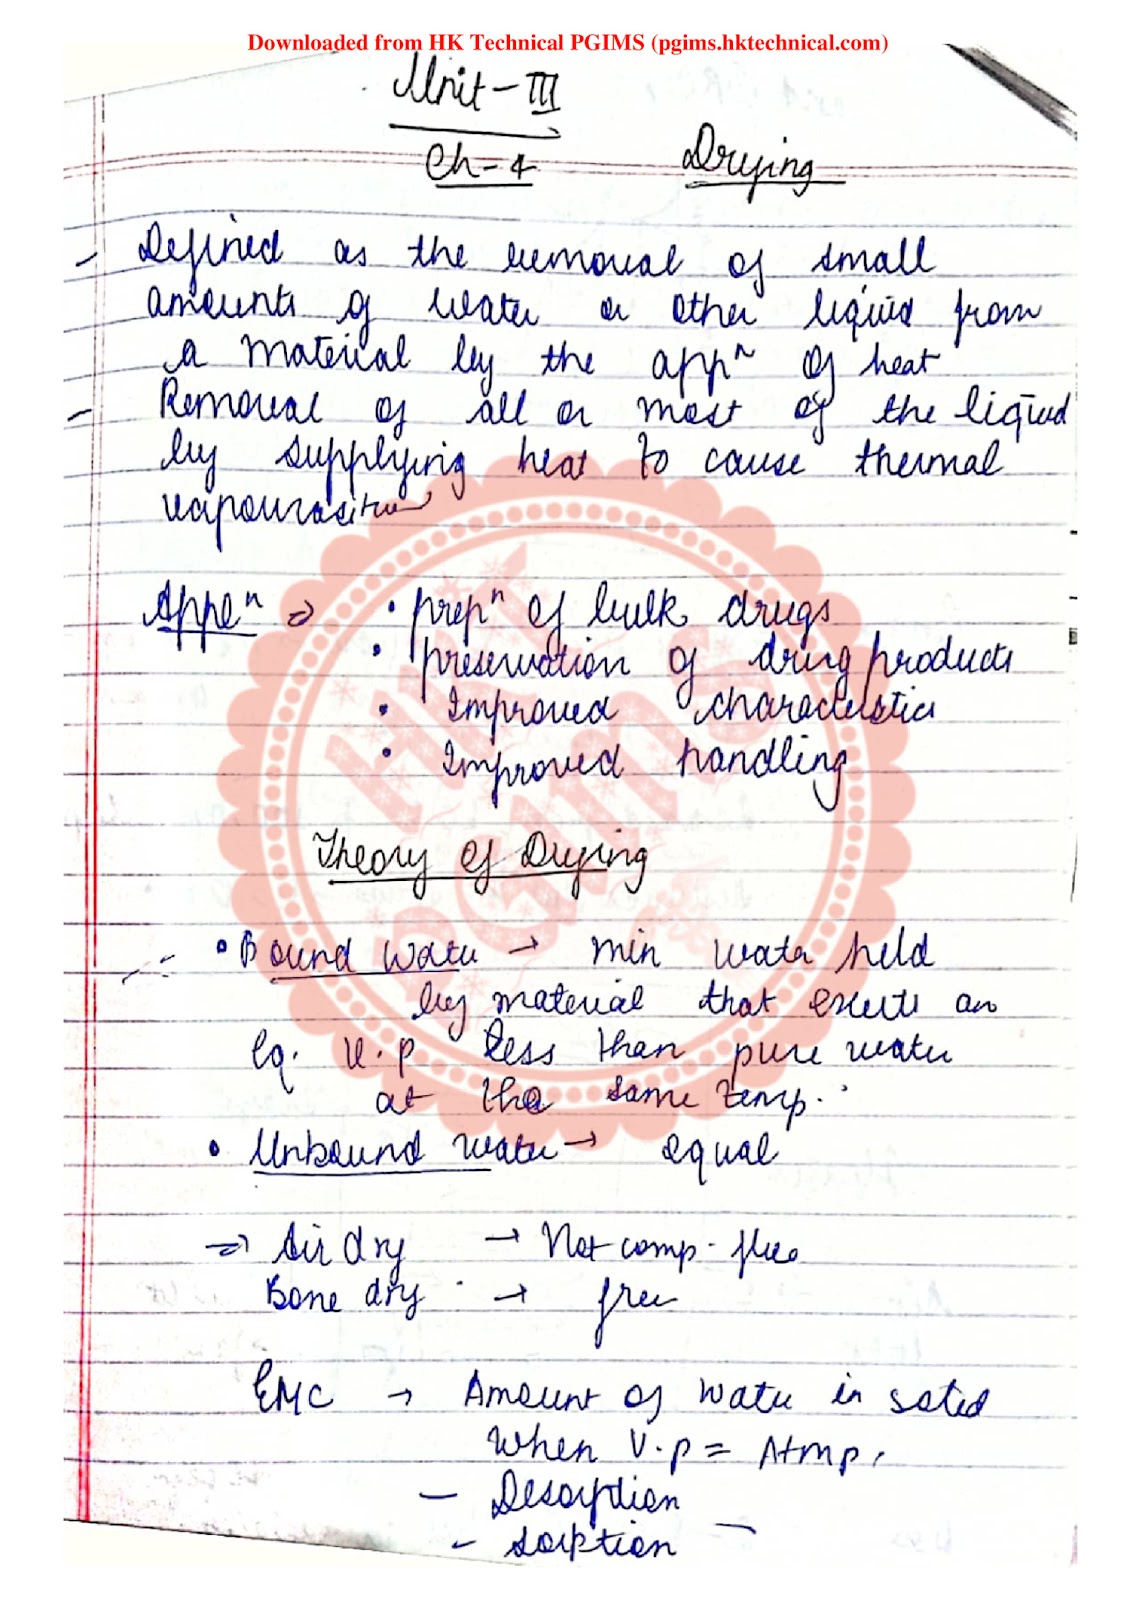 Downloaded from HK Technical PGIMS (pgims.hktechnical.com)
Unit - III
Ch-4 Drying
- Defined as the removal of small
amounts of water or other liquid from
a material by the appⁿ of heat
- Removal of all or most of the liquid
by supplying heat to cause thermal
vapourasition
Appeⁿ ⇒ • prepⁿ of bulk drugs
• preservation of drug products
• Improved characteristics
• Improved handling
Theory of Drying
• Bound water → min water held
by material that exerts an
Eq. V.p less than pure water
at the same temp.
• Unbound water → equal
⇒ Air dry → Not comp. free
Bone dry → free
EMC → Amount of water in
when V.p = Atmp.
- Desorption
- Sorption
HK
PGIMS